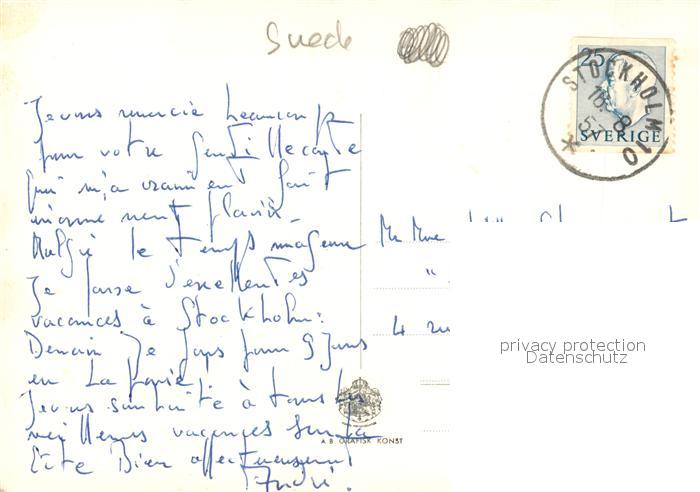 Suede
25
STOCKHOLM 10
18. 8
SVERIGE
Je vous remercie beaucoup
pour votre gentille carte
qui m'a vraiment fait
énormement plaisir.
Malgré le temps nuageux
Je passe d'excellentes
vacances à Stockholm.
Demain Je pars pour 9 Jours
en Laponie.
Je vous souhaite à tous les
meilleures vacances sur la
Côte Bien affectueusement
André.
Mr Mme
4 rue
privacy protection
Datenschutz
A.B. GRAFISK KONST